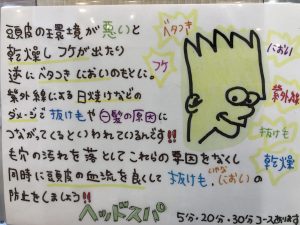 頭皮の環境が悪いと
乾燥しフケが出たり
逆にベタつきにおいのもとに。
紫外線による日焼けなどの
ダメージで抜け毛や白髪の原因に
つながってくるといわれているんです!!
毛穴の汚れを落としてこれらの要因をなくし
同時に頭皮の血流を良くして抜け毛・いやなにおいの
防止をしましょう!!
ヘッドスパ
5分・20分・30分コースあります
ベタつき
フケ
におい
紫外線
抜け毛
乾燥